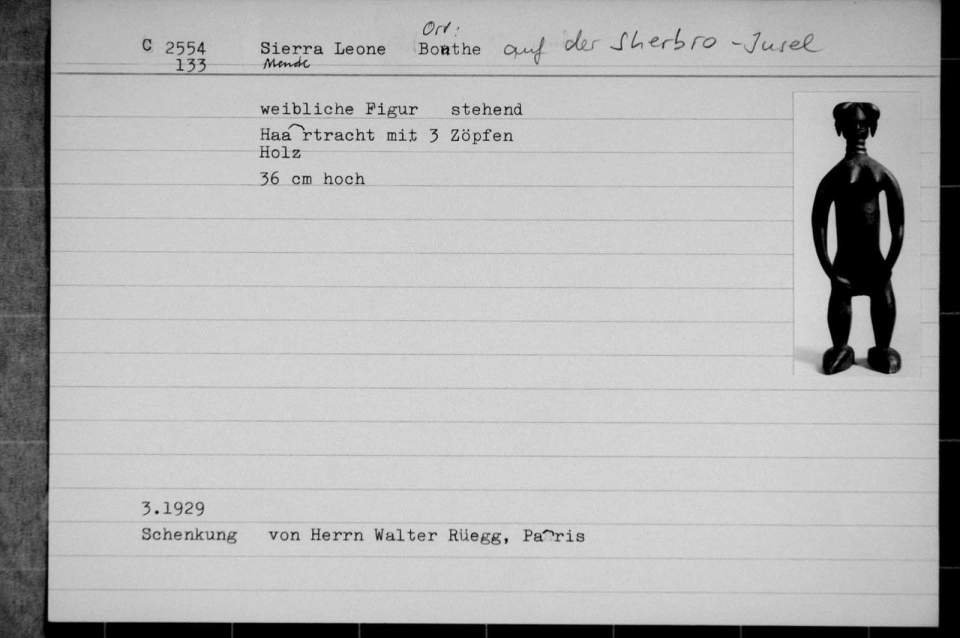 Ort:
C 2554 Sierra Leone Bonthe auf der Sherbro-Insel
133 Mende
weibliche Figur stehend
Haartracht mit 3 Zöpfen
Holz
36 cm hoch
3.1929
Schenkung von Herrn Walter Rüegg, Paris